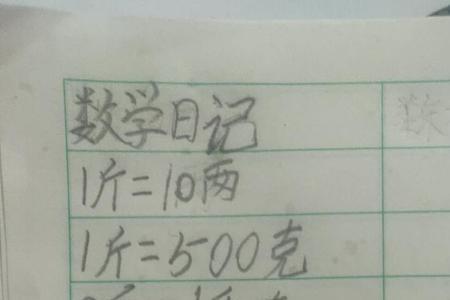 数学日记
1斤=10两
1斤=500克